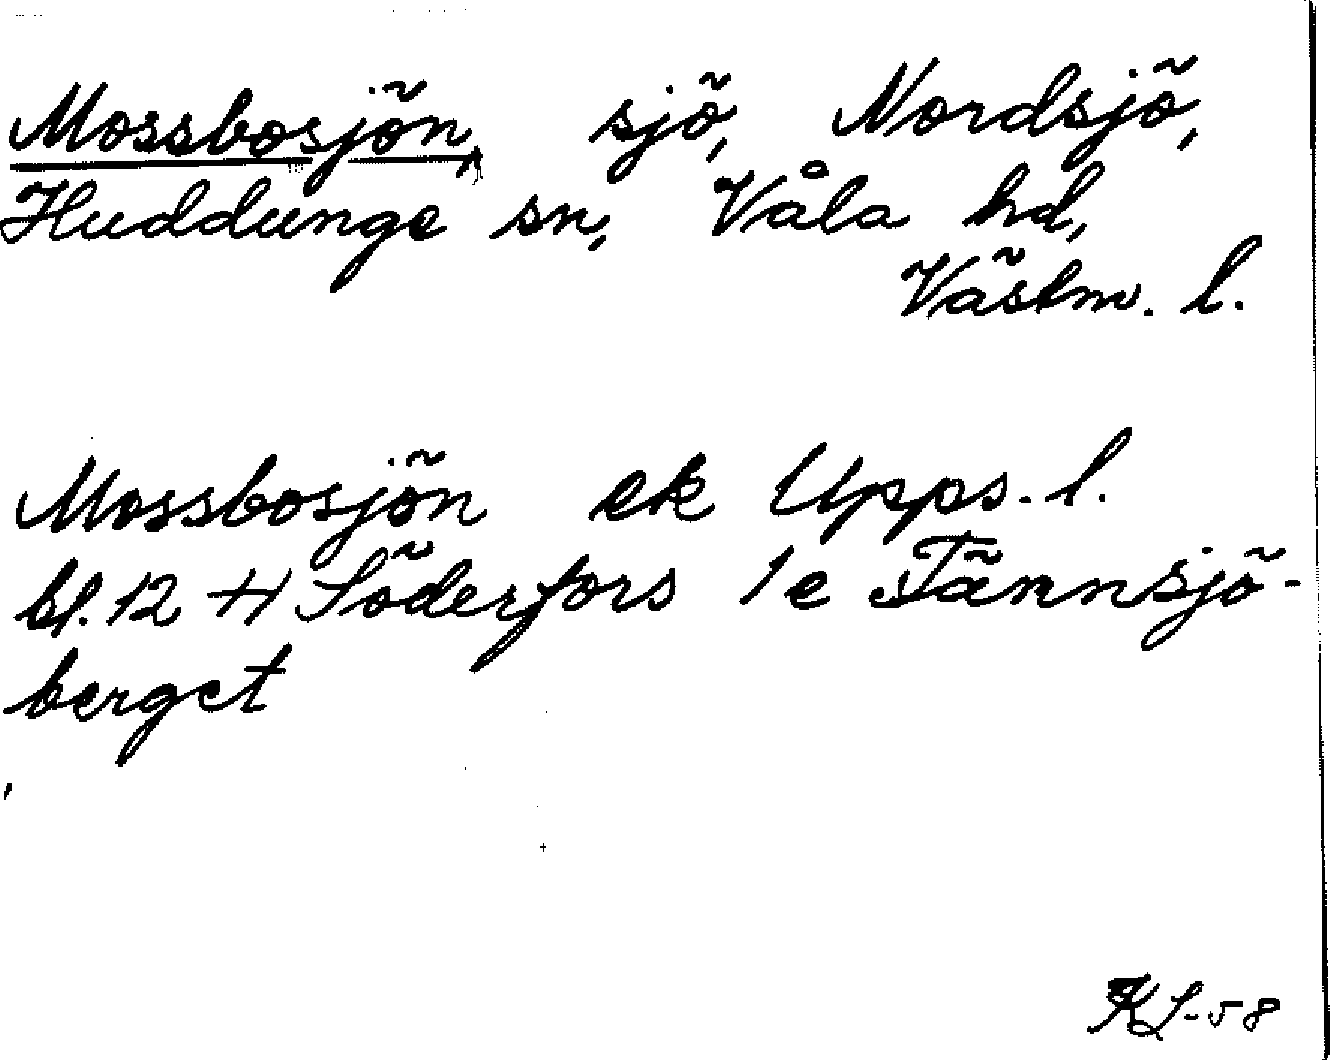 Mossbosjön, sjö, Nordsjö,
Huddunge sn, Våla hd,
Västm. l.
Mossbosjön ek Upps. l.
bl. 12 H Söderfors 1e Tännsjö-
berget
KL-58